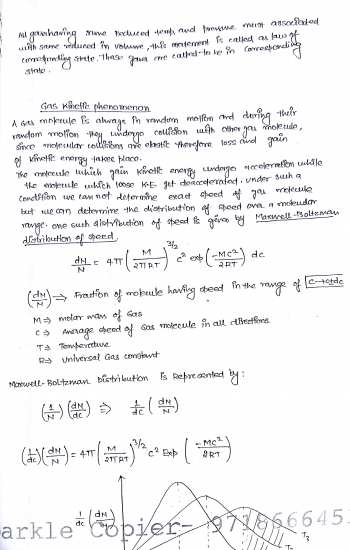 All gases having same reduced temp. and pressure must associated
with same reduced in volume, this statement is called as law of
corresponding state. These gases are called to be in corresponding
state.
Gas Kinetic phenomenon
A Gas molecule is always in random motion and during their
random motion they undergo collision with other gas molecule,
since molecular collisions are elastic therefore loss and gain
of kinetic energy takes place.
The molecule which gain kinetic energy undergo acceleration while
the molecule which loose K.E. get deaccelerated. under such a
condition we can not determine exact speed of gas molecule
but we can determine the distribution of speed over a molecular
range. one such distribution of speed is given by Maxwell-Boltzman
distribution of speed.
dN/N = 4π (M/2πRT)^3/2 c² exp(-Mc²/2RT) dc
(dN/N) → Fraction of molecule having speed in the range of C→c+dc
M → molar mass of Gas
C → Average speed of Gas molecule in all directions
T → Temperature
R → Universal Gas constant
Maxwell-Boltzman Distribution is Represented by:
(1/N) (dN/dc) ⇒ 1/dc (dN/N)
(1/dc)(dN/N) = 4π (M/2πRT)^3/2 c² Exp (-Mc²/2RT)
1/dc (dN/N)
T3
arkle Copier- 9718666451